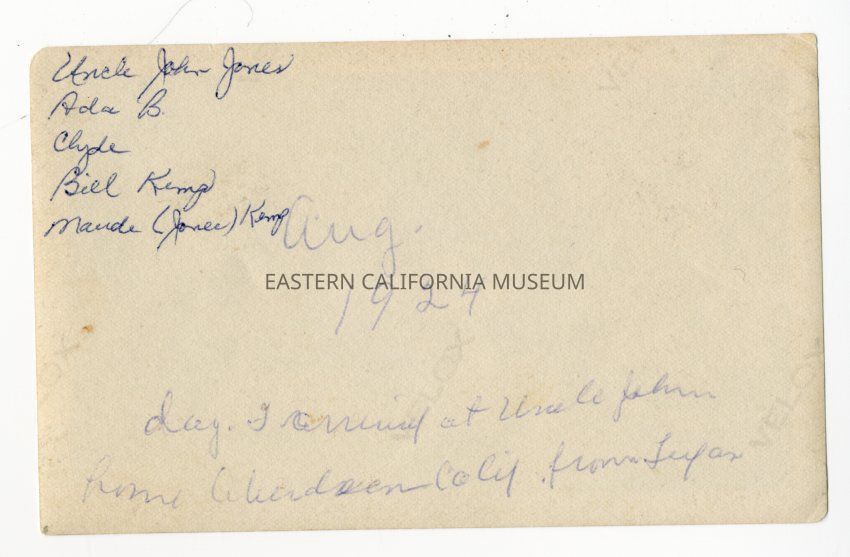 Uncle John Jones
Ada B.
Clyde
Bill Kemp
Maude (Jones) Kemp
Aug.
EASTERN CALIFORNIA MUSEUM
1924
day. I arrived at Uncle John
home Aberdeen Calif. from Texas
VELOX
VELOX